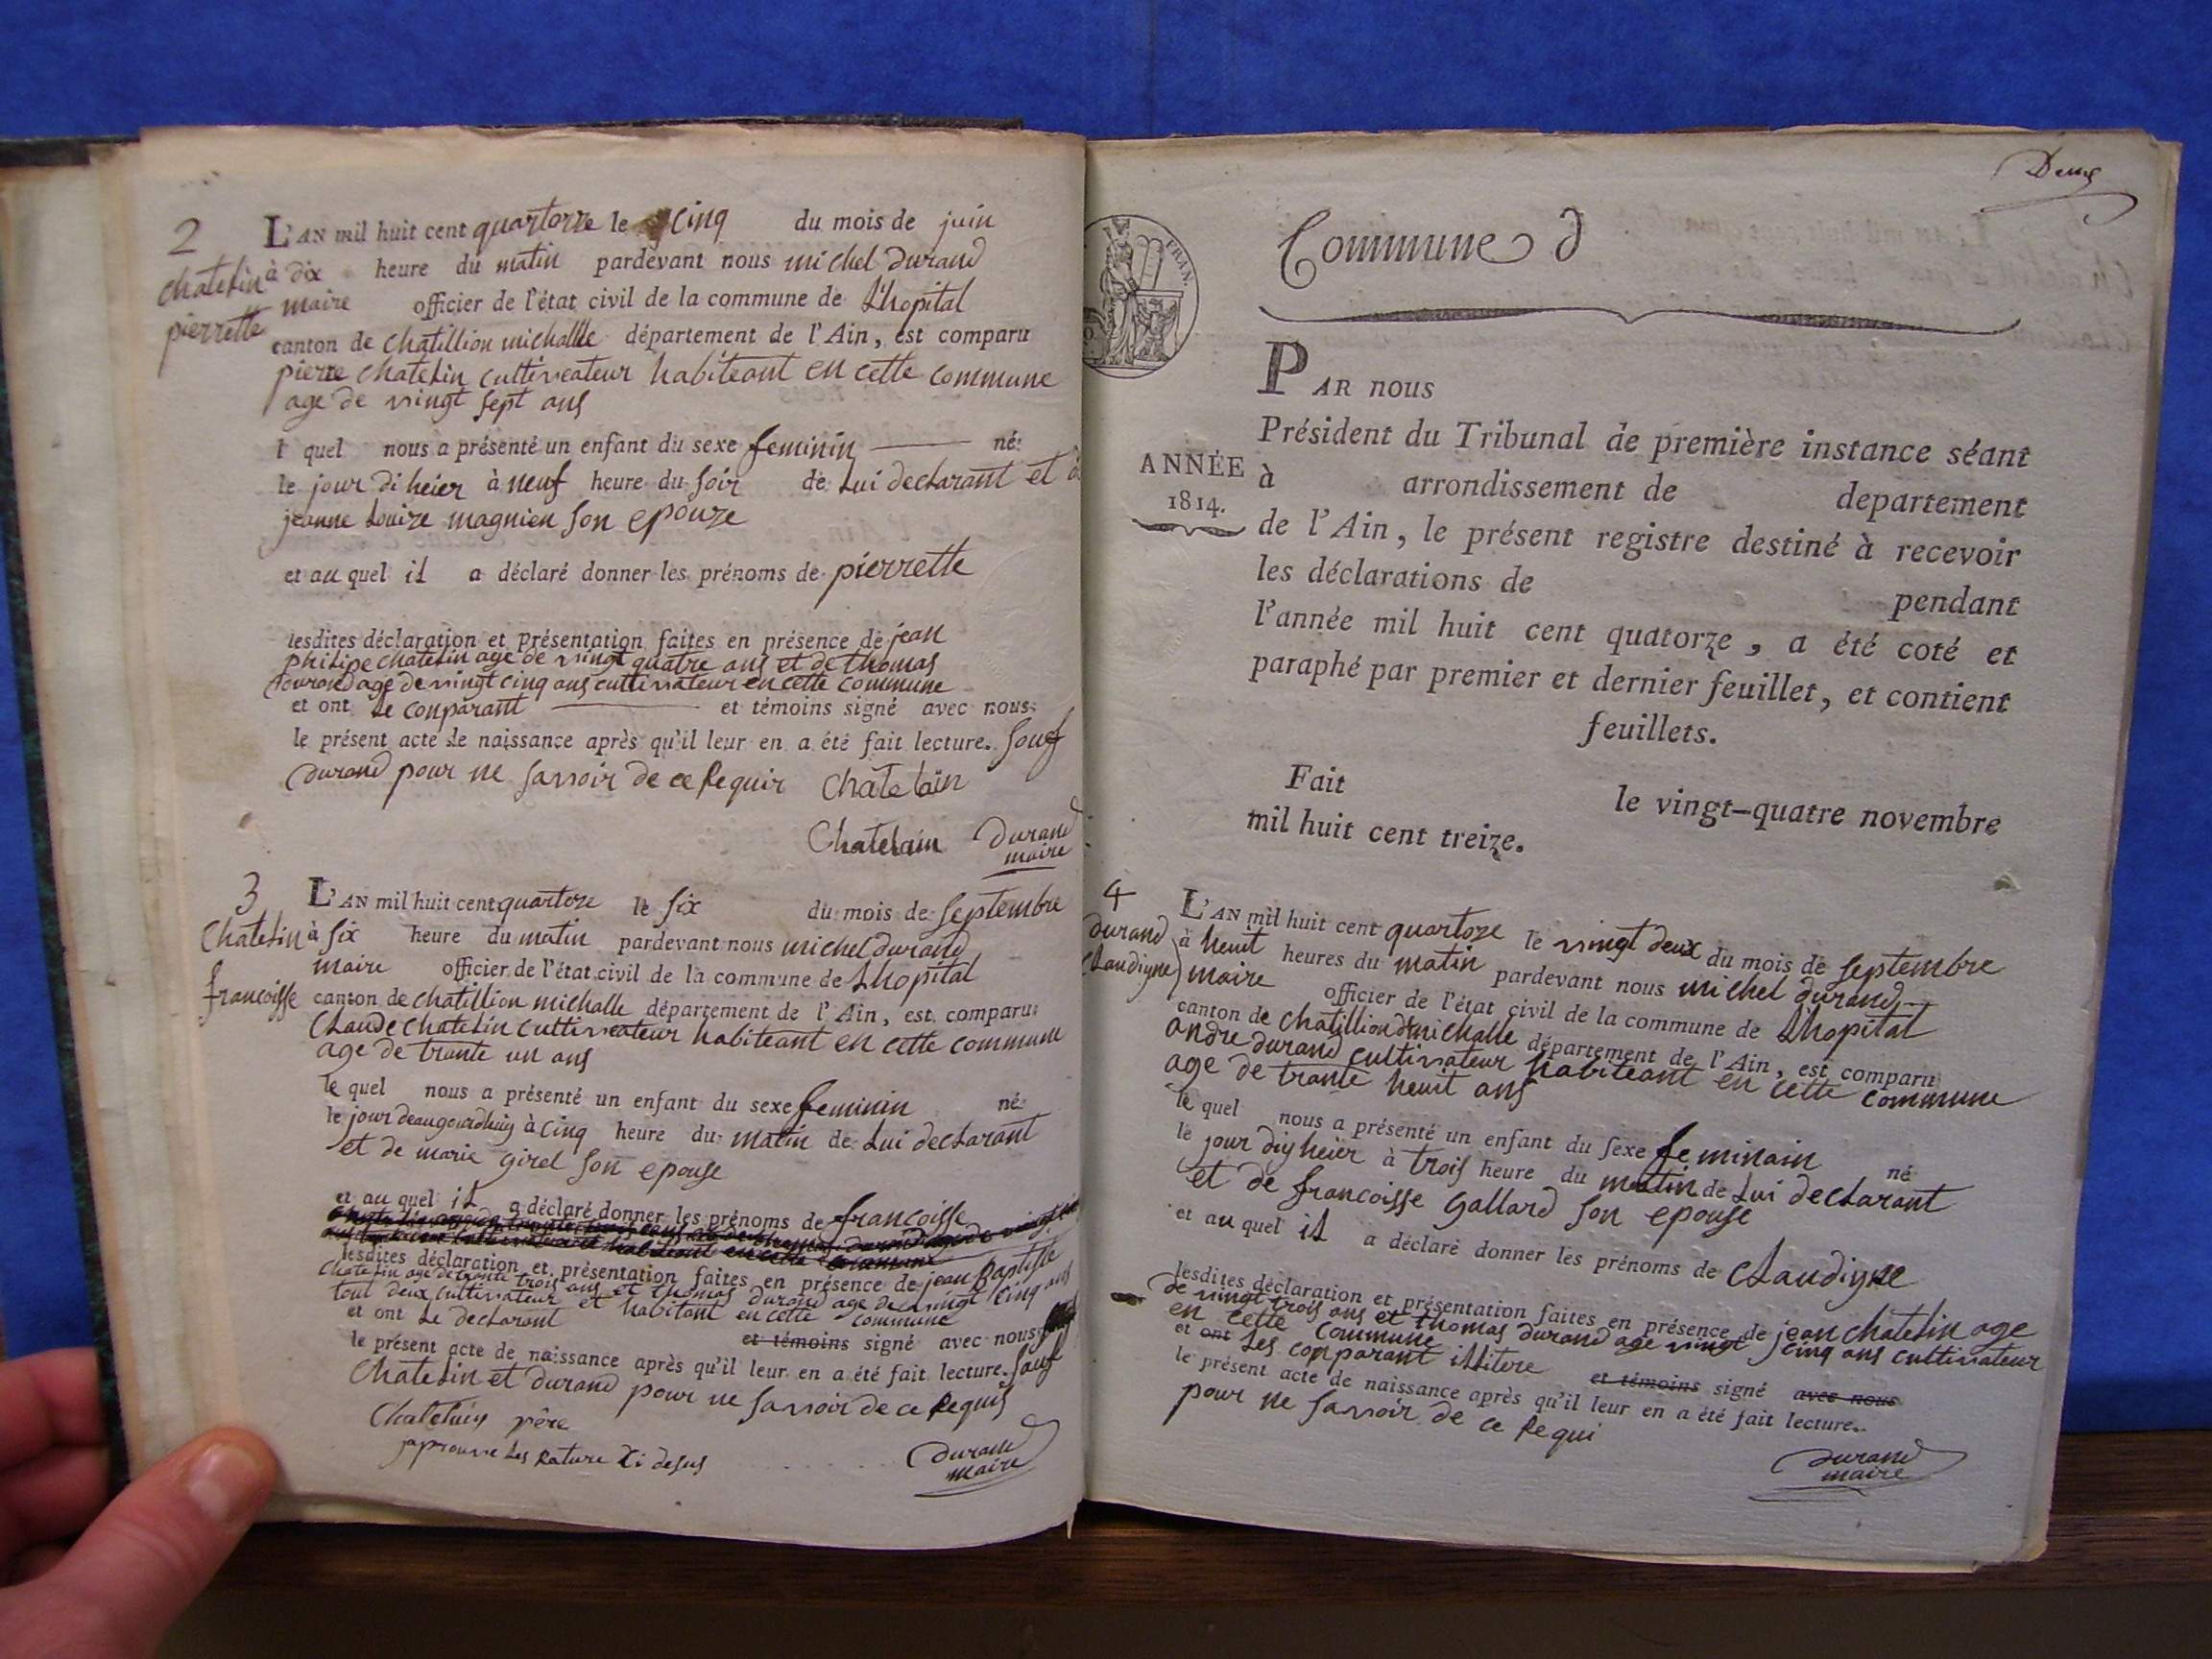 2
chatelin
pierrette
L'AN mil huit cent quartorze le cinq du mois de juin
à dix heure du matin pardevant nous michel durand
maire officier de l'état civil de la commune de L'hopital
canton de chatillion michallle département de l'Ain, est comparu
pierre chatelin cultiveateur habiteant en cette commune
age de vingt sept ans
l quel nous a présenté un enfant du sexe feminin né
le jour di heier à neuf heure du soir de Lui declarant et
jeanne Louize magnien son epouze
et au quel il a déclaré donner les prénoms de pierrette
lesdites déclaration et présentation faites en présence de jean
philipe chatelin age de vingt quatre ans et de thomas
durand age de vingt cinq ans cultivateur en cette commune
et ont le conparant et témoins signé avec nous
le présent acte de naissance après qu'il leur en a été fait lecture. souf
durand pour ne savoir de ce Requir Chatelain
Chatelain Durand
maire
3
Chatelin
francoisse
L'AN mil huit cent quartorze le six du mois de septembre
à six heure du matin pardevant nous michel durand
maire officier de l'état civil de la commune de Lhopital
canton de chatillion michalle département de l'Ain, est comparu
Claude chatelin cultiveateur habiteant en cette commune
age de trante un ans
le quel nous a présenté un enfant du sexe feminin né
le jour deaugourdhuiy à cinq heure du matin de Lui declarant
et de marie girel son epouse
et au quel il a déclaré donner les prénoms de francoisse
lesdites déclaration et présentation faites en présence de jean Baptiste
chatelin age de trante trois ans et thomas durand age de vingt cinq ans
tout deux cultivateur et habitant en cette commune
et ont Le declarant et témoins signé avec nous
le présent acte de naissance après qu'il leur en a été fait lecture. sauf
Chatelin et durand pour ne savoir de ce Requis
Chatelain père
japrouve Les Rature Ci desus
Durand
maire
Deux
Commune d
FRAN.
ANNÉE
1814.
PAR nous
Président du Tribunal de première instance séant
à arrondissement de departement
de l'Ain, le présent registre destiné à recevoir
les déclarations de pendant
l'année mil huit cent quatorze, a été coté et
paraphé par premier et dernier feuillet, et contient
feuillets.
Fait le vingt-quatre novembre
mil huit cent treize.
4
durand
Claudigne
L'AN mil huit cent quartoze le vingt deux du mois de septembre
à heuit heures du matin pardevant nous michel durand
maire officier de l'état civil de la commune de Lhopital
canton de chatilliond michalle département de l'Ain, est comparu
andre durand cultivateur habiteant en cette commune
age de trante heuit ans
le quel nous a présenté un enfant du sexe feminain né
le jour diy heier à trois heure du matin de Lui declarant
et de francoisse gallard son epouse
et au quel il a déclaré donner les prénoms de Claudigne
lesdites déclaration et présentation faites en présence de jean chatelin age
de vingt trois ans et thomas durand age vingt cinq ans cultivateur
en cette commune
et ont Les conparant illitere et témoins signé avec nous
le présent acte de naissance après qu'il leur en a été fait lecture.
pour ne savoir de ce Requi
durand
maire